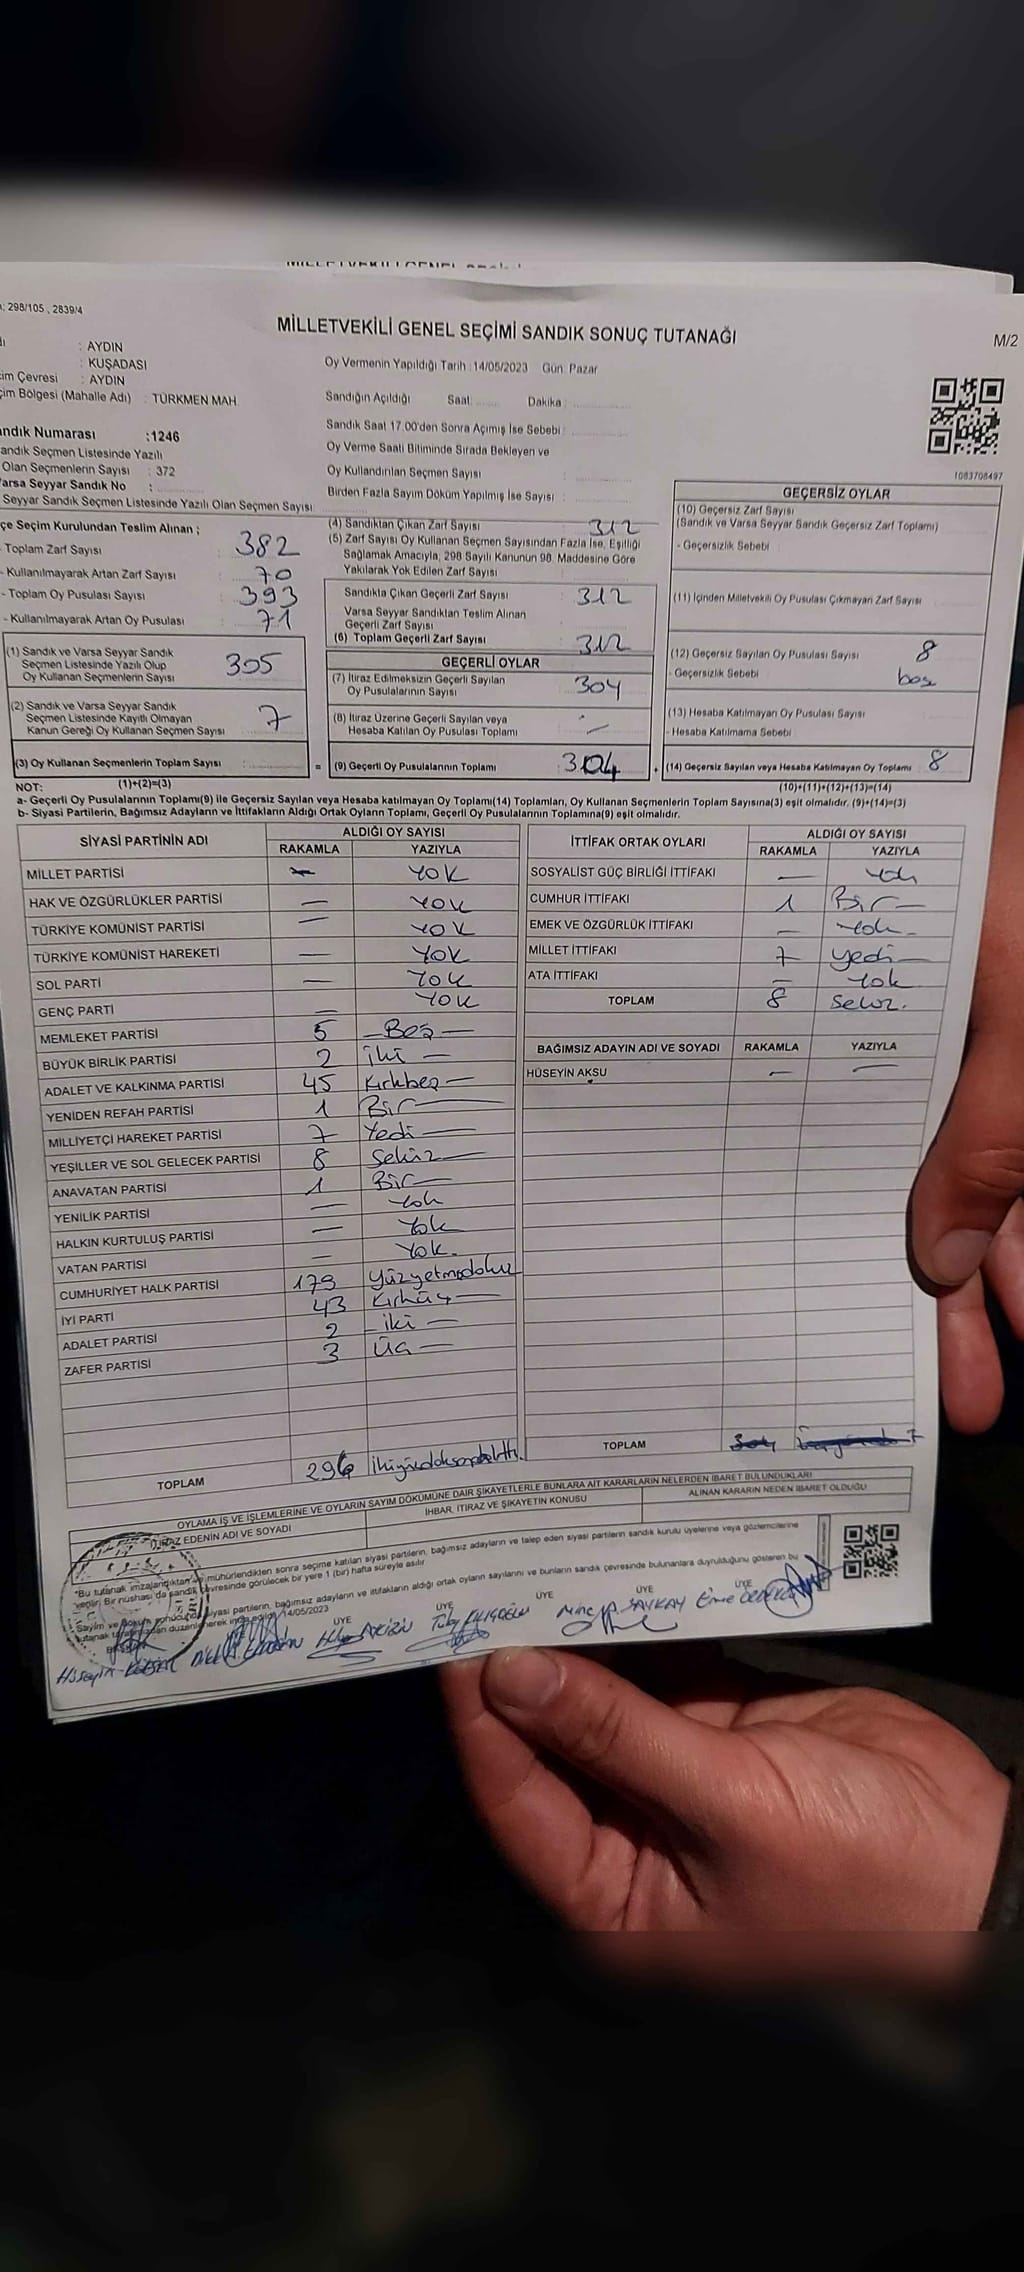 298/105 , 2839/4
MİLLETVEKİLİ GENEL SEÇİMİ SANDIK SONUÇ TUTANAĞI
M/2
: AYDIN
: KUŞADASI
im Çevresi : AYDIN
çim Bölgesi (Mahalle Adı) : TÜRKMEN MAH
Oy Vermenin Yapıldığı Tarih : 14/05/2023 Gün: Pazar
Sandığın Açıldığı Saat: Dakika :
Sandık Saat 17.00'den Sonra Açımış İse Sebebi :
Oy Verme Saati Bitiminde Sırada Bekleyen ve
Oy Kullandırılan Seçmen Sayısı :
Birden Fazla Sayım Döküm Yapılmış İse Sayısı :
1083708497
andık Numarası :1246
andık Seçmen Listesinde Yazılı
Olan Seçmenlerin Sayısı : 372
arsa Seyyar Sandık No :
Seyyar Sandık Seçmen Listesinde Yazılı Olan Seçmen Sayısı
çe Seçim Kurulundan Teslim Alınan ;
Toplam Zarf Sayısı 382
- Kullanılmayarak Artan Zarf Sayısı 70
- Toplam Oy Pusulası Sayısı 393
- Kullanılmayarak Artan Oy Pusulası 71
(1) Sandık ve Varsa Seyyar Sandık
Seçmen Listesinde Yazılı Olup
Oy Kullanan Seçmenlerin Sayısı 305
(2) Sandık ve Varsa Seyyar Sandık
Seçmen Listesinde Kayıtlı Olmayan
Kanun Gereği Oy Kullanan Seçmen Sayısı 7
(3) Oy Kullanan Seçmenlerin Toplam Sayısı :
(4) Sandıktan Çıkan Zarf Sayısı : 312
(5) Zarf Sayısı Oy Kullanan Seçmen Sayısından Fazla İse, Eşitliği
Sağlamak Amacıyla, 298 Sayılı Kanunun 98. Maddesine Göre
Yakılarak Yok Edilen Zarf Sayısı
Sandıkta Çıkan Geçerli Zarf Sayısı : 312
Varsa Seyyar Sandıktan Teslim Alınan
Geçerli Zarf Sayısı
(6) Toplam Geçerli Zarf Sayısı : 312
GEÇERLİ OYLAR
(7) İtiraz Edilmeksizin Geçerli Sayılan
Oy Pusulalarının Sayısı : 304
(8) İtiraz Üzerine Geçerli Sayılan veya
Hesaba Katılan Oy Pusulası Toplamı : —
= (9) Geçerli Oy Pusulalarının Toplamı : 304
GEÇERSİZ OYLAR
(10) Geçersiz Zarf Sayısı
(Sandık ve Varsa Seyyar Sandık Geçersiz Zarf Toplamı)
- Geçersizlik Sebebi
(11) İçinden Milletvekili Oy Pusulası Çıkmayan Zarf Sayısı
(12) Geçersiz Sayılan Oy Pusulası Sayısı 8
- Geçersizlik Sebebi boş
(13) Hesaba Katılmayan Oy Pusulası Sayısı
- Hesaba Katılmama Sebebi
(14) Geçersiz Sayılan veya Hesaba Katılmayan Oy Toplamı : 8
NOT: (1)+(2)=(3) (10)+(11)+(12)+(13)=(14)
a- Geçerli Oy Pusulalarının Toplamı(9) ile Geçersiz Sayılan veya Hesaba katılmayan Oy Toplamı(14) Toplamları, Oy Kullanan Seçmenlerin Toplam Sayısına(3) eşit olmalıdır. (9)+(14)=(3)
b- Siyasi Partilerin, Bağımsız Adayların ve İttifakların Aldığı Ortak Oyların Toplamı, Geçerli Oy Pusulalarının Toplamına(9) eşit olmalıdır.
SİYASİ PARTİNİN ADI ALDIĞI OY SAYISI
RAKAMLA YAZIYLA
MİLLET PARTİSİ — YOK
HAK VE ÖZGÜRLÜKLER PARTİSİ — YOK
TÜRKİYE KOMÜNİST PARTİSİ — YOK
TÜRKİYE KOMÜNİST HAREKETİ — YOK
SOL PARTİ — YOK
GENÇ PARTİ — YOK
MEMLEKET PARTİSİ 5 — Beş —
BÜYÜK BİRLİK PARTİSİ 2 iki —
ADALET VE KALKINMA PARTİSİ 45 Kırkbeş —
YENİDEN REFAH PARTİSİ 1 Bir —
MİLLİYETÇİ HAREKET PARTİSİ 7 Yedi —
YEŞİLLER VE SOL GELECEK PARTİSİ 8 Sekiz —
ANAVATAN PARTİSİ 1 Bir —
YENİLİK PARTİSİ — Yok
HALKIN KURTULUŞ PARTİSİ — Yok
VATAN PARTİSİ — Yok.
CUMHURİYET HALK PARTİSİ 179 Yüzyetmişdokuz
İYİ PARTİ 43 Kırküç —
ADALET PARTİSİ 2 iki —
ZAFER PARTİSİ 3 Üç —
TOPLAM 296 İkiyüzdoksanaltı.
İTTİFAK ORTAK OYLARI ALDIĞI OY SAYISI
RAKAMLA YAZIYLA
SOSYALİST GÜÇ BİRLİĞİ İTTİFAKI — Yok
CUMHUR İTTİFAKI 1 Bir —
EMEK VE ÖZGÜRLÜK İTTİFAKI — Yok —
MİLLET İTTİFAKI 7 Yedi —
ATA İTTİFAKI — Yok
TOPLAM 8 Sekiz.
BAĞIMSIZ ADAYIN ADI VE SOYADI RAKAMLA YAZIYLA
HÜSEYİN AKSU — —
TOPLAM 304
OYLAMA İŞ VE İŞLEMLERİNE VE OYLARIN SAYIM DÖKÜMÜNE DAİR ŞİKAYETLERLE BUNLARA AİT KARARLARIN NELERDEN İBARET BULUNDUKLARI
İTİRAZ EDENİN ADI VE SOYADI İHBAR, İTİRAZ VE ŞİKAYETİN KONUSU ALINAN KARARIN NEDEN İBARET OLDUĞU
"Bu tutanak imzalandıktan ve mühürlendikten sonra seçime katılan siyasi partilerin, bağımsız adayların ve talep eden siyasi partilerin sandık kurulu üyelerine veya gözlemcilerine
verilir. Bir nüshası da sandık çevresinde görülecek bir yere 1 (bir) hafta süreyle asılır
Sayım ve döküm sonucunda siyasi partilerin, bağımsız adayların ve ittifakların aldığı ortak oyların sayılarını ve bunların sandık çevresinde bulunanlara duyurulduğunu gösteren bu
tutanak düzenlenerek 14/05/2023
ÜYE ÜYE ÜYE ÜYE ÜYE
Hüseyin Tülay KILIÇOĞLU Mine SAYKAY Emine